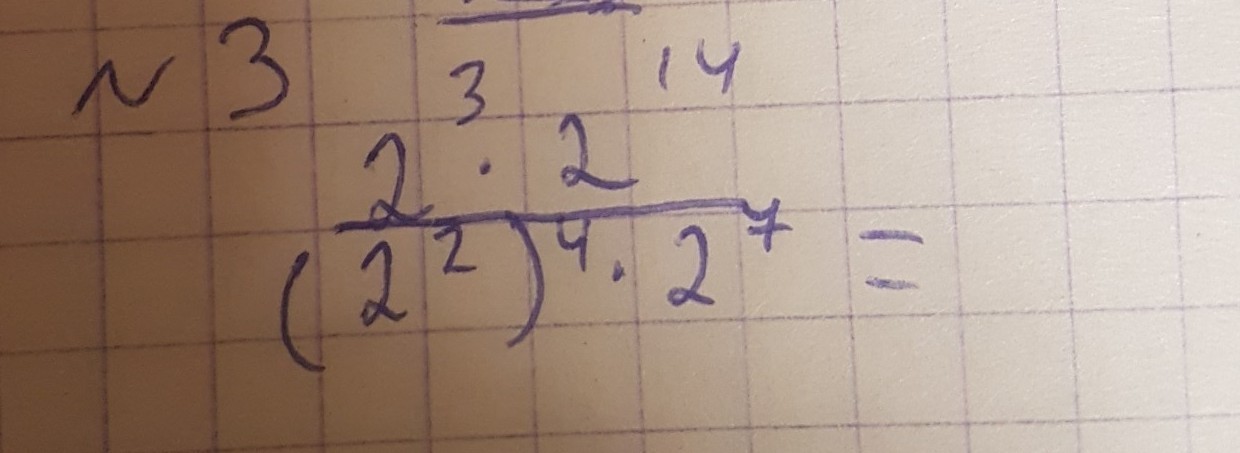 № 3
2³ · 2¹⁴
(2²)⁴ · 2⁷ =